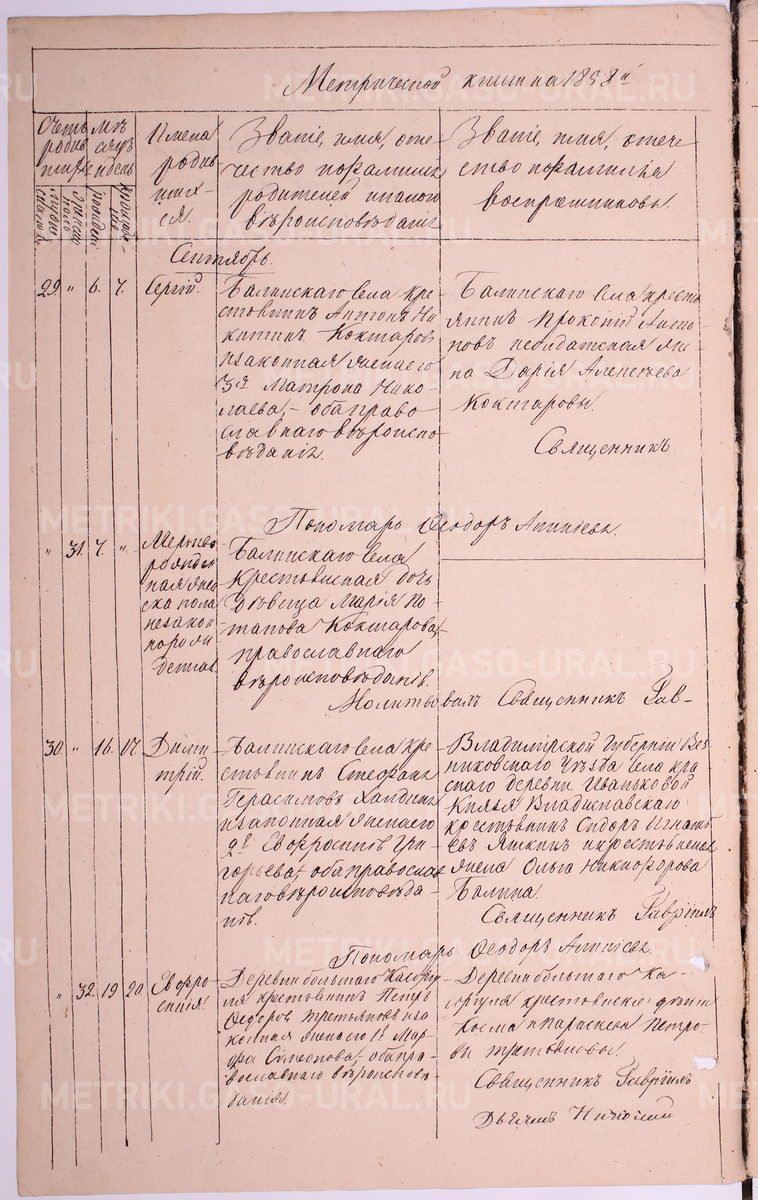 Метрической книги на 1858й
Счетъ родив шихся
Мъ сяцъ и день
мужеска
женска
рожденiя
крещенiя
Имена родив шихся.
Званiе, имя, оте чество и фамилiя родителей и какого вѣроисповѣданiя
Званiе, имя, отече ство и фамилiя воспрiемниковъ.
Сентябрь.
29 " 6. 7. Сергiй.
Балинскаго села кре
стьянинъ Антонъ Ни
китинъ Кокшаровъ
и законная жена его
Матрона Нико
лаева, – оба право
славнаго вѣроиспо
вѣданiя.
Балинскаго села кресть
янинъ Прокопiй Анто
новъ и солдатская же
на Дарiя Алексѣева
Кокшаровы.
Священникъ
Пономарь Ѳеодоръ
" 31. 7. "
Мертво
рожден
ная жен
ска пола
незакон
Балинскаго села
крестьянская дочь
дѣвица Марiя По
тапова Кокшарова,
православнаго
вѣроисповѣданiя.
Молитвовалъ Священникъ Гав-
30. " 16. 17. Дими
трiй.
Балинскаго села кре
стьянинъ Стефанъ
Герасимовъ
и законная жена его
Евфросинiя Гри
горьева, оба правосла
внаго вѣроисповѣда
нiя.
Владимiрской Губернiи Вяз
никовскаго Уѣзда села Кра
снаго деревни Иваньковой
Князя Владиславскаго
крестьянинъ Сидоръ Игнать
евъ Яшкинъ и крестьянская
жена Ольга Никифорова
Балина.
Священникъ Гаврiилъ
Пономарь Ѳеодоръ
" 32. 19 20. Евфро
синiя.
Деревни большаго Касоргу
ля крестьянинъ Петръ
Ѳедоровъ Третьяковъ и за
конная жена его 1й Мар
фа Симеонова, оба пра
вославнаго вѣроисповѣ
данiя.
Деревни большаго Ка-
соргуля крестьянскiе дѣти
Косма и Параскева Петро
вы Третьяковы.
Священникъ Гаврiилъ
Дьячекъ Николай
METRIKI.GASO-URAL.RU